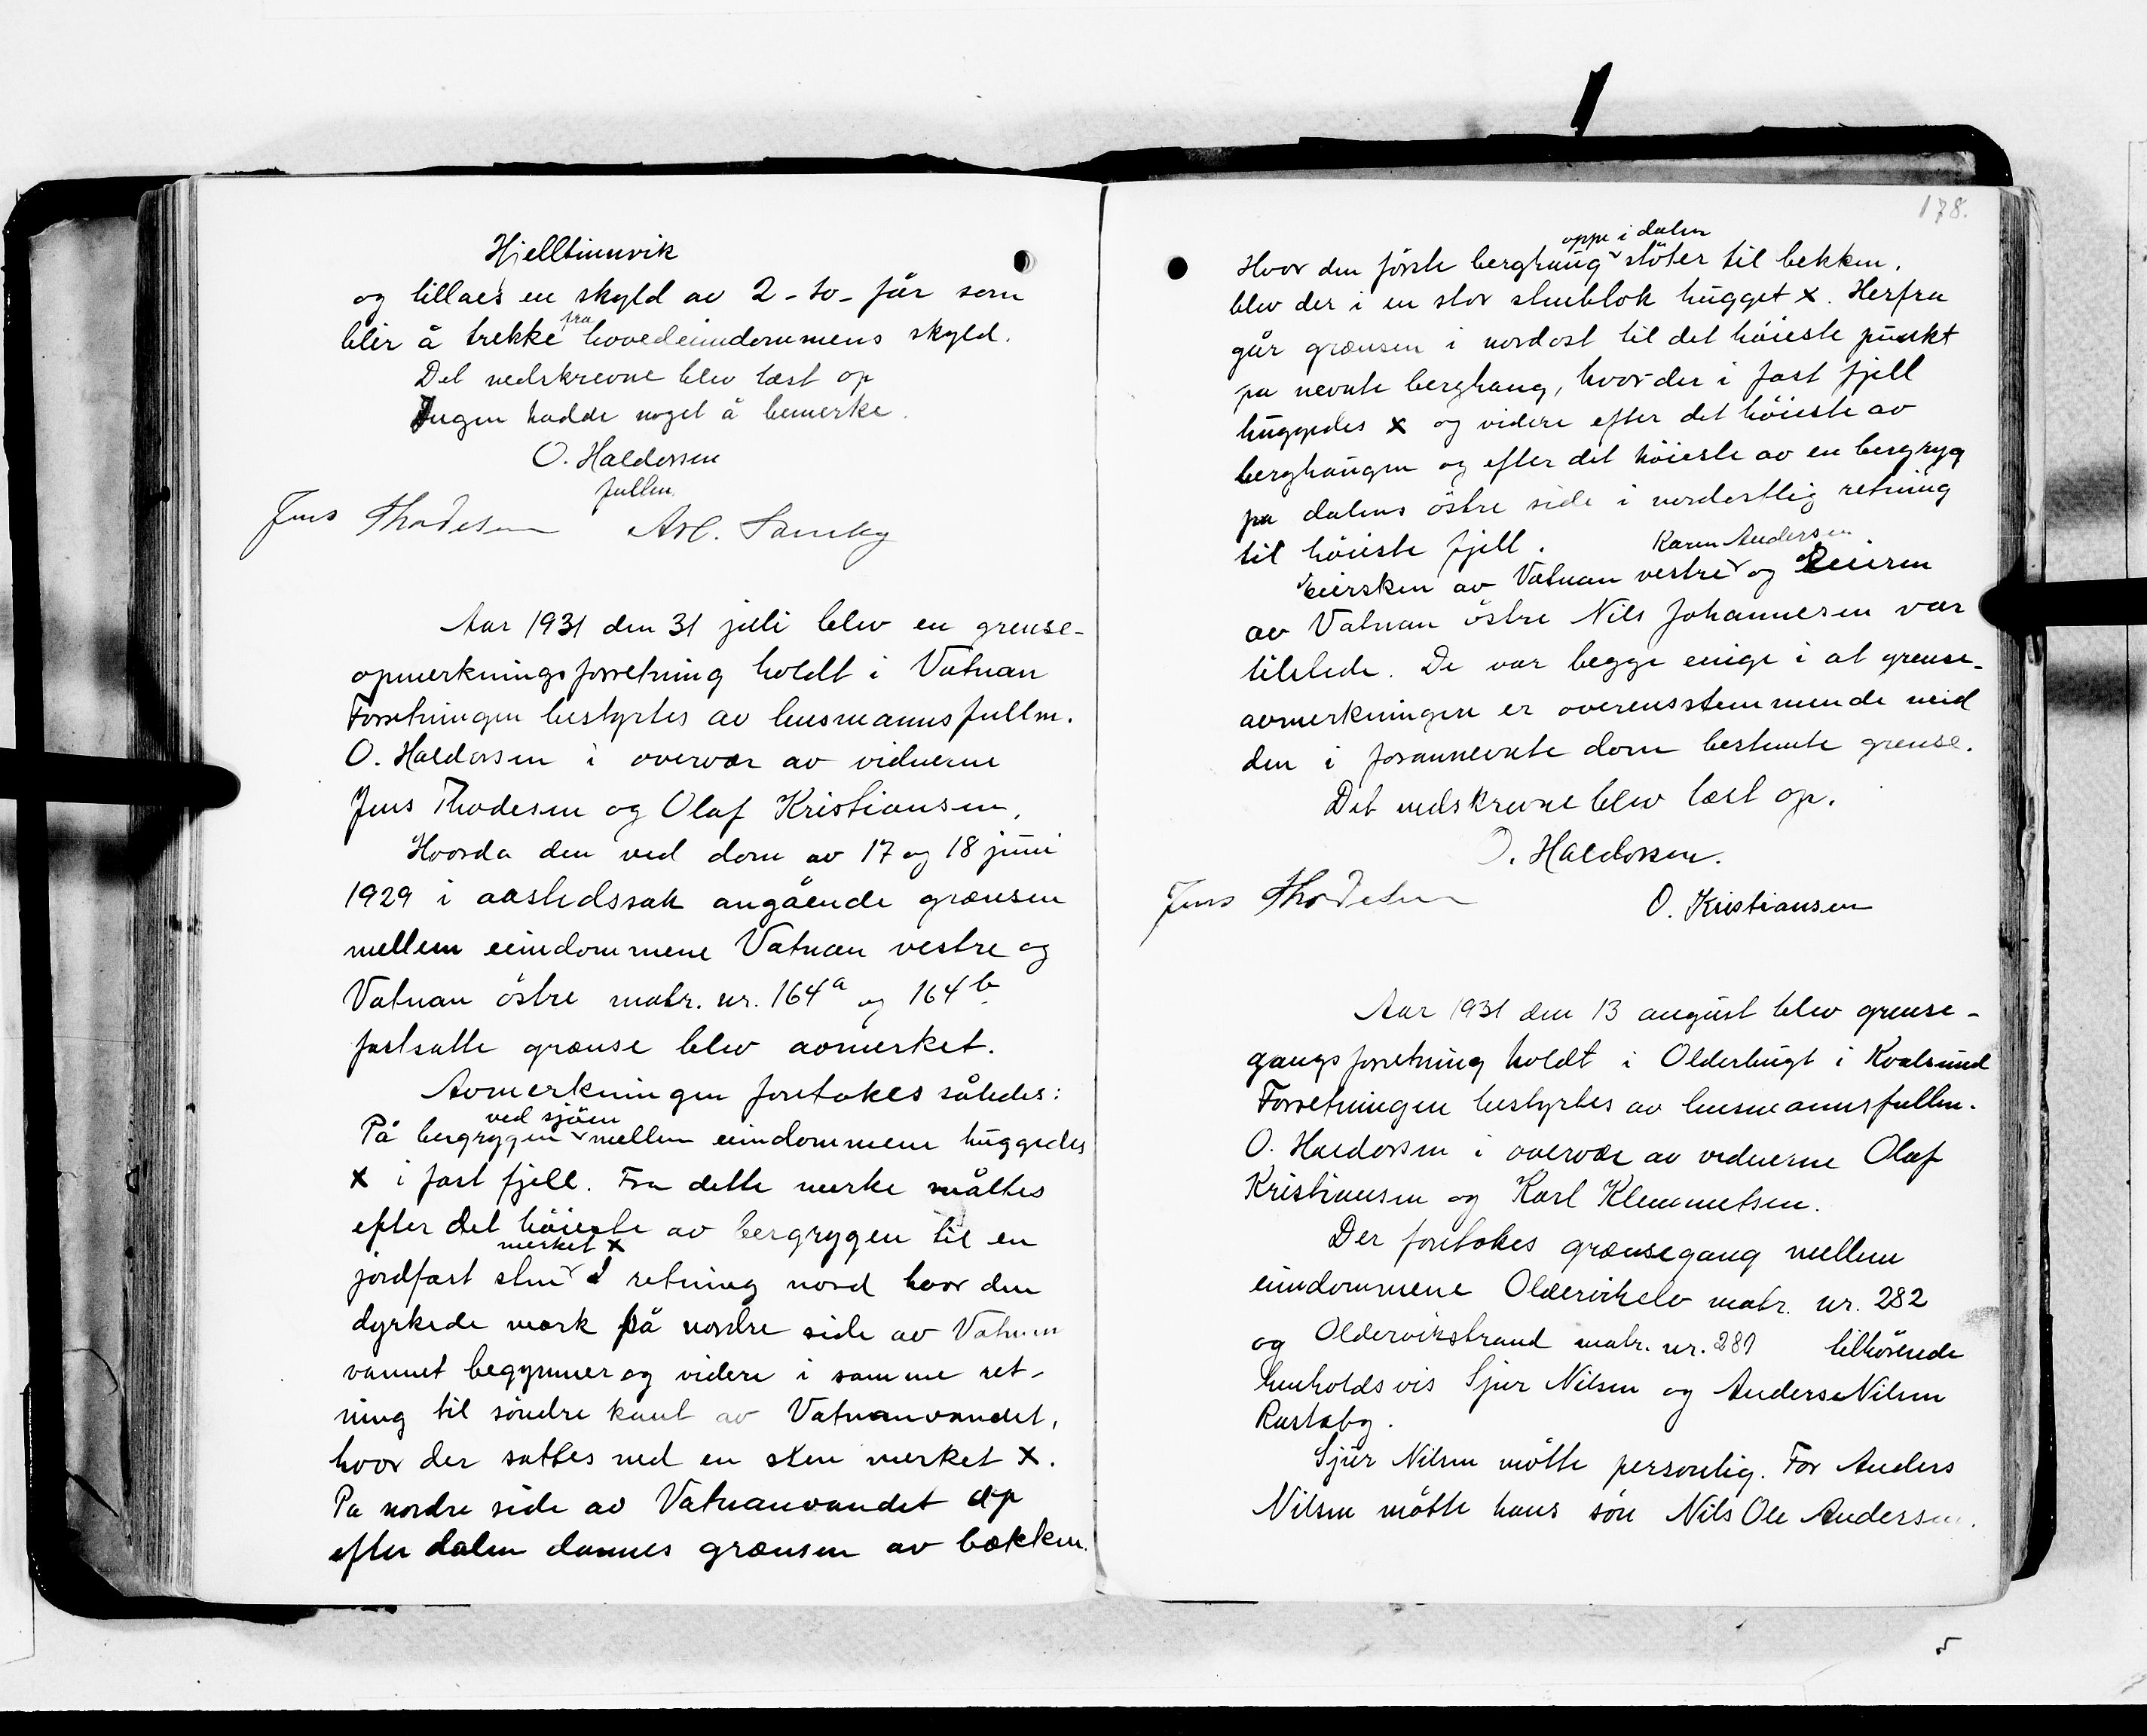 Hjelltinnvik
og tillaes en skyld av 2 - to - får som
blir å trekke fra hovedeiendommens skyld.
Det nedskrevne blev læst op
Ingen hadde noget å bemerke.
O. Haldorsen
fullm.
Jens Thodesen Axl. Samby
Aar 1931 den 31 juli blev en grense-
opmerkningsforretning holdt i Vatnan
Forretningen bestyrtes av lensmannsfullm.
O. Haldorsen i overvær av vidnerne
Jens Thodesen og Olaf Kristiansen.
Hvorda den ved dom av 17 og 18 juni
1929 i aastedssak angående grænsen
mellem eiendommene Vatnan vestre og
Vatnan östre matr. nr. 164a og 164b
fastsatte grænse blev avmerket.
Avmerkningen foretokes således:
På bergryggen ved sjöen mellem eiendommene huggedes
x i fast fjell. Fra dette merke måltes
efter det höieste av bergrygen til en
jordfast sten merket x i retning nord hvor den
dyrkede mark på nordre side av Vatnan
vannet begynner og videre i samme ret-
ning til söndre kant av Vatnanvandet,
hvor der sattes ned en sten merket x.
Pa nordre side av Vatnanvandet op
efter dalen dannes grænsen av bækken.
178.
Hvor den förste berghaug oppe i dalen stöter til bekken.
blev der i en stor stenblok hugget x. Herfra
går grænsen i nordost til det höieste punkt
pa nevnte berghaug, hvor der i fast fjell
huggedes x og videre efter det höieste av
berghaugen og efter det höieste av en bergryg
pa dalens östre side i nordostlig retning
til höieste fjell.
Eiersken av Vatnan vestre Karen Andersen og Eieren
av Vatnan östre Nils Johannesen var
tilstede. De var begge enige i at grense-
avmerkningen er overensstemmende med
den i forannevnte dom bestemte grense.
Det nedskrevne blev læst op.
O. Haldorsen.
Jens Thodesen
O. Kristiansen
Aar 1931 den 13 august blev grense-
gangsforretning holdt i Olderbugt i Kvalsund
Forretningen bestyrtes av lensmannsfullm.
O. Haldorsen i overvær av vidnerne Olaf
Kristiansen og Karl Klemmetsen.
Der foretokes grænsegang mellem
eiendommene Oldervikelv matr. nr. 282
og Oldervikstrand matr. nr. 281 tilhörende
henholdsvis Sjur Nilsen og Anders Nilsen
Rastaby.
Sjur Nilsen mötte personlig. For Anders
Nilsen mötte hans sön Nils Ole Andersen.
5